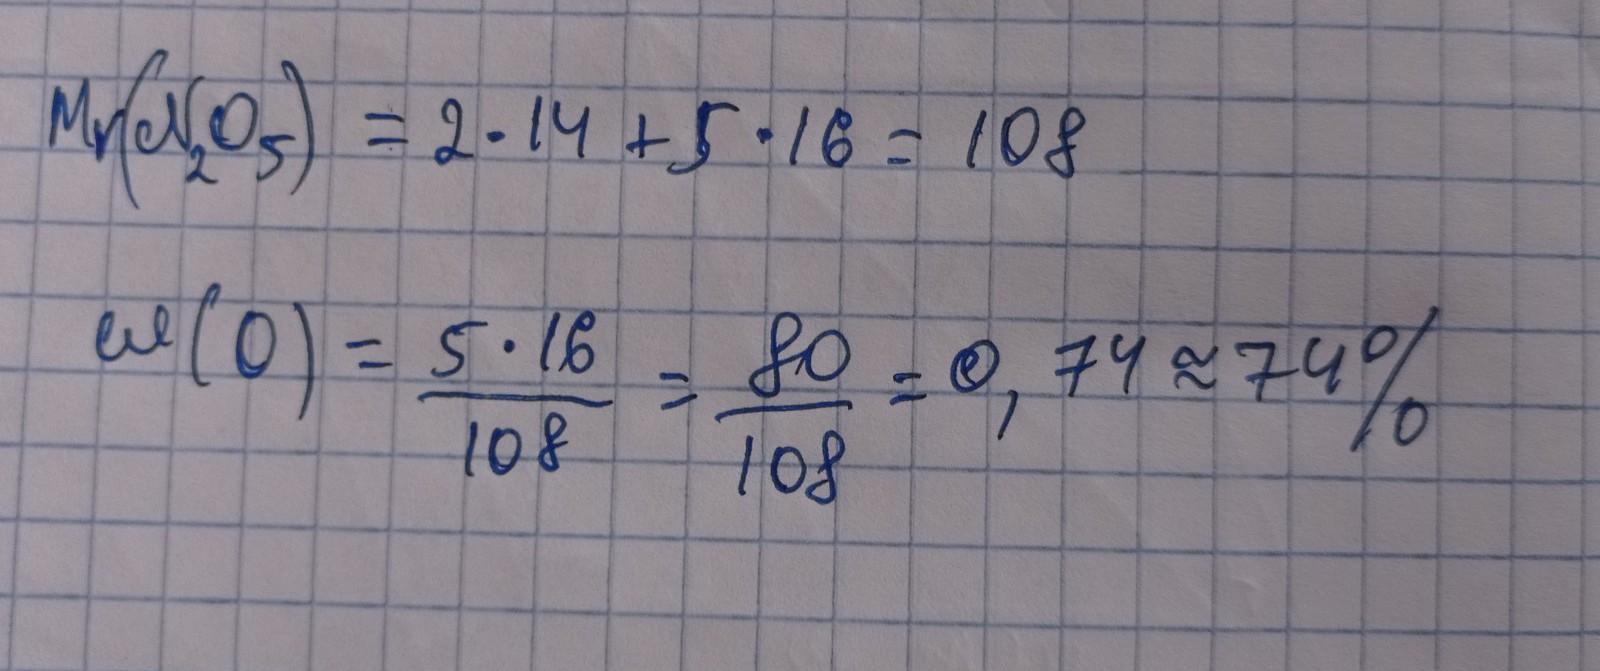 Mr(N₂O₅) = 2·14 + 5·16 = 108
w(O) = 5·16/108 = 80/108 = 0,74 ≈ 74%